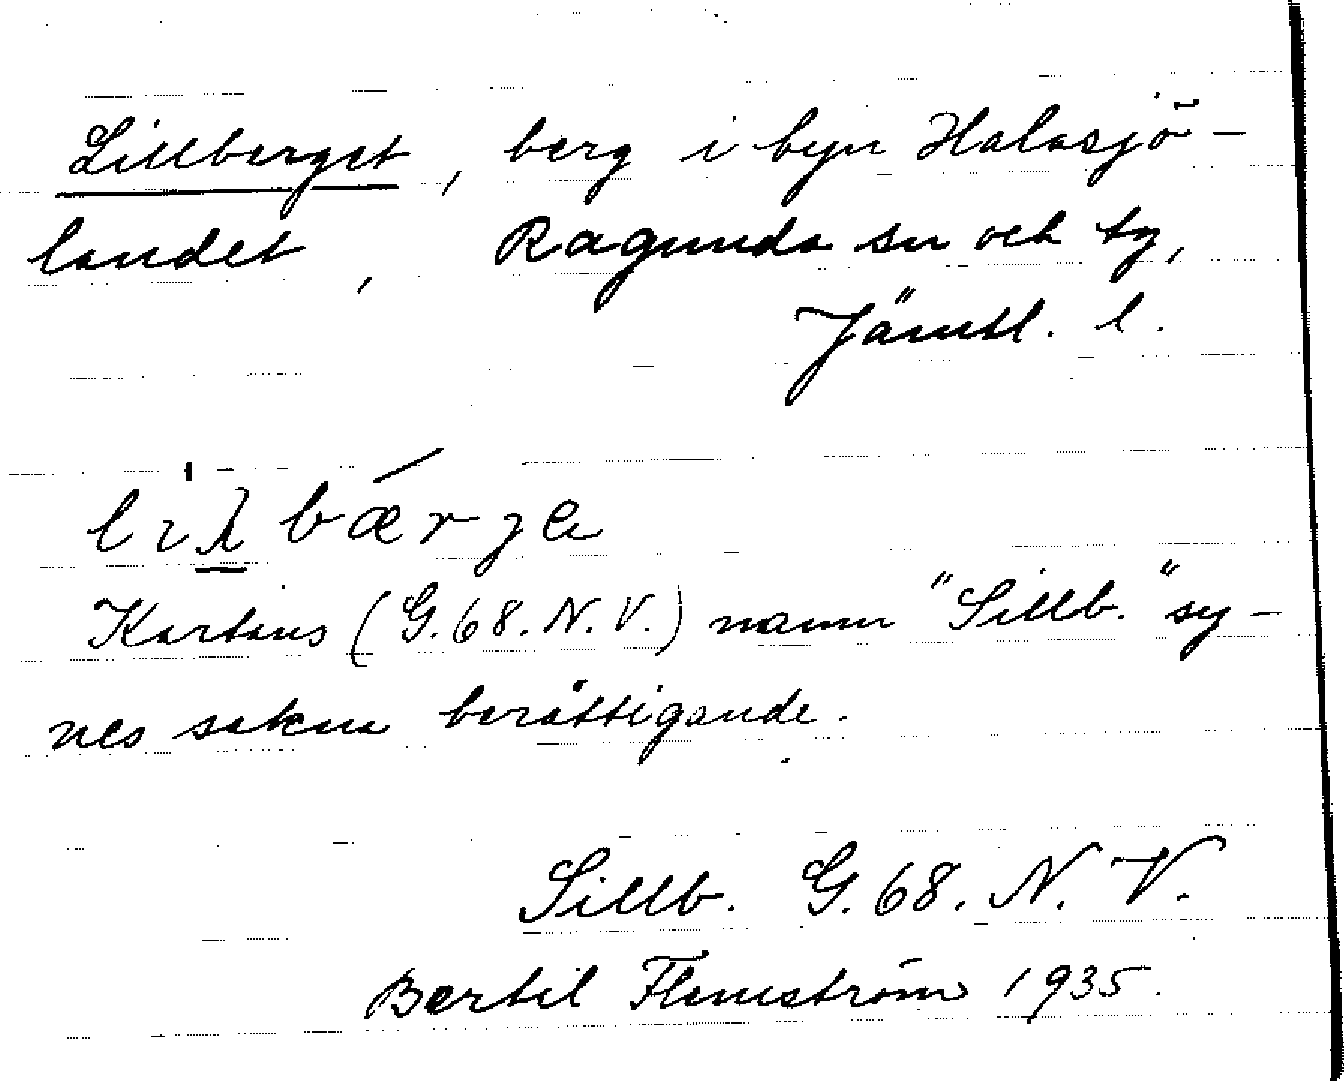 Lillberget, berg i byn Halasjö-
landet, Ragunda sn och tg,
Jämtl. l.
lilbærje
Kartans (G.68.N.V.) namn "Sillb." sy-
nes sakna berättigande.
Sillb. G.68.N.V.
Bertil Flemström 1935.